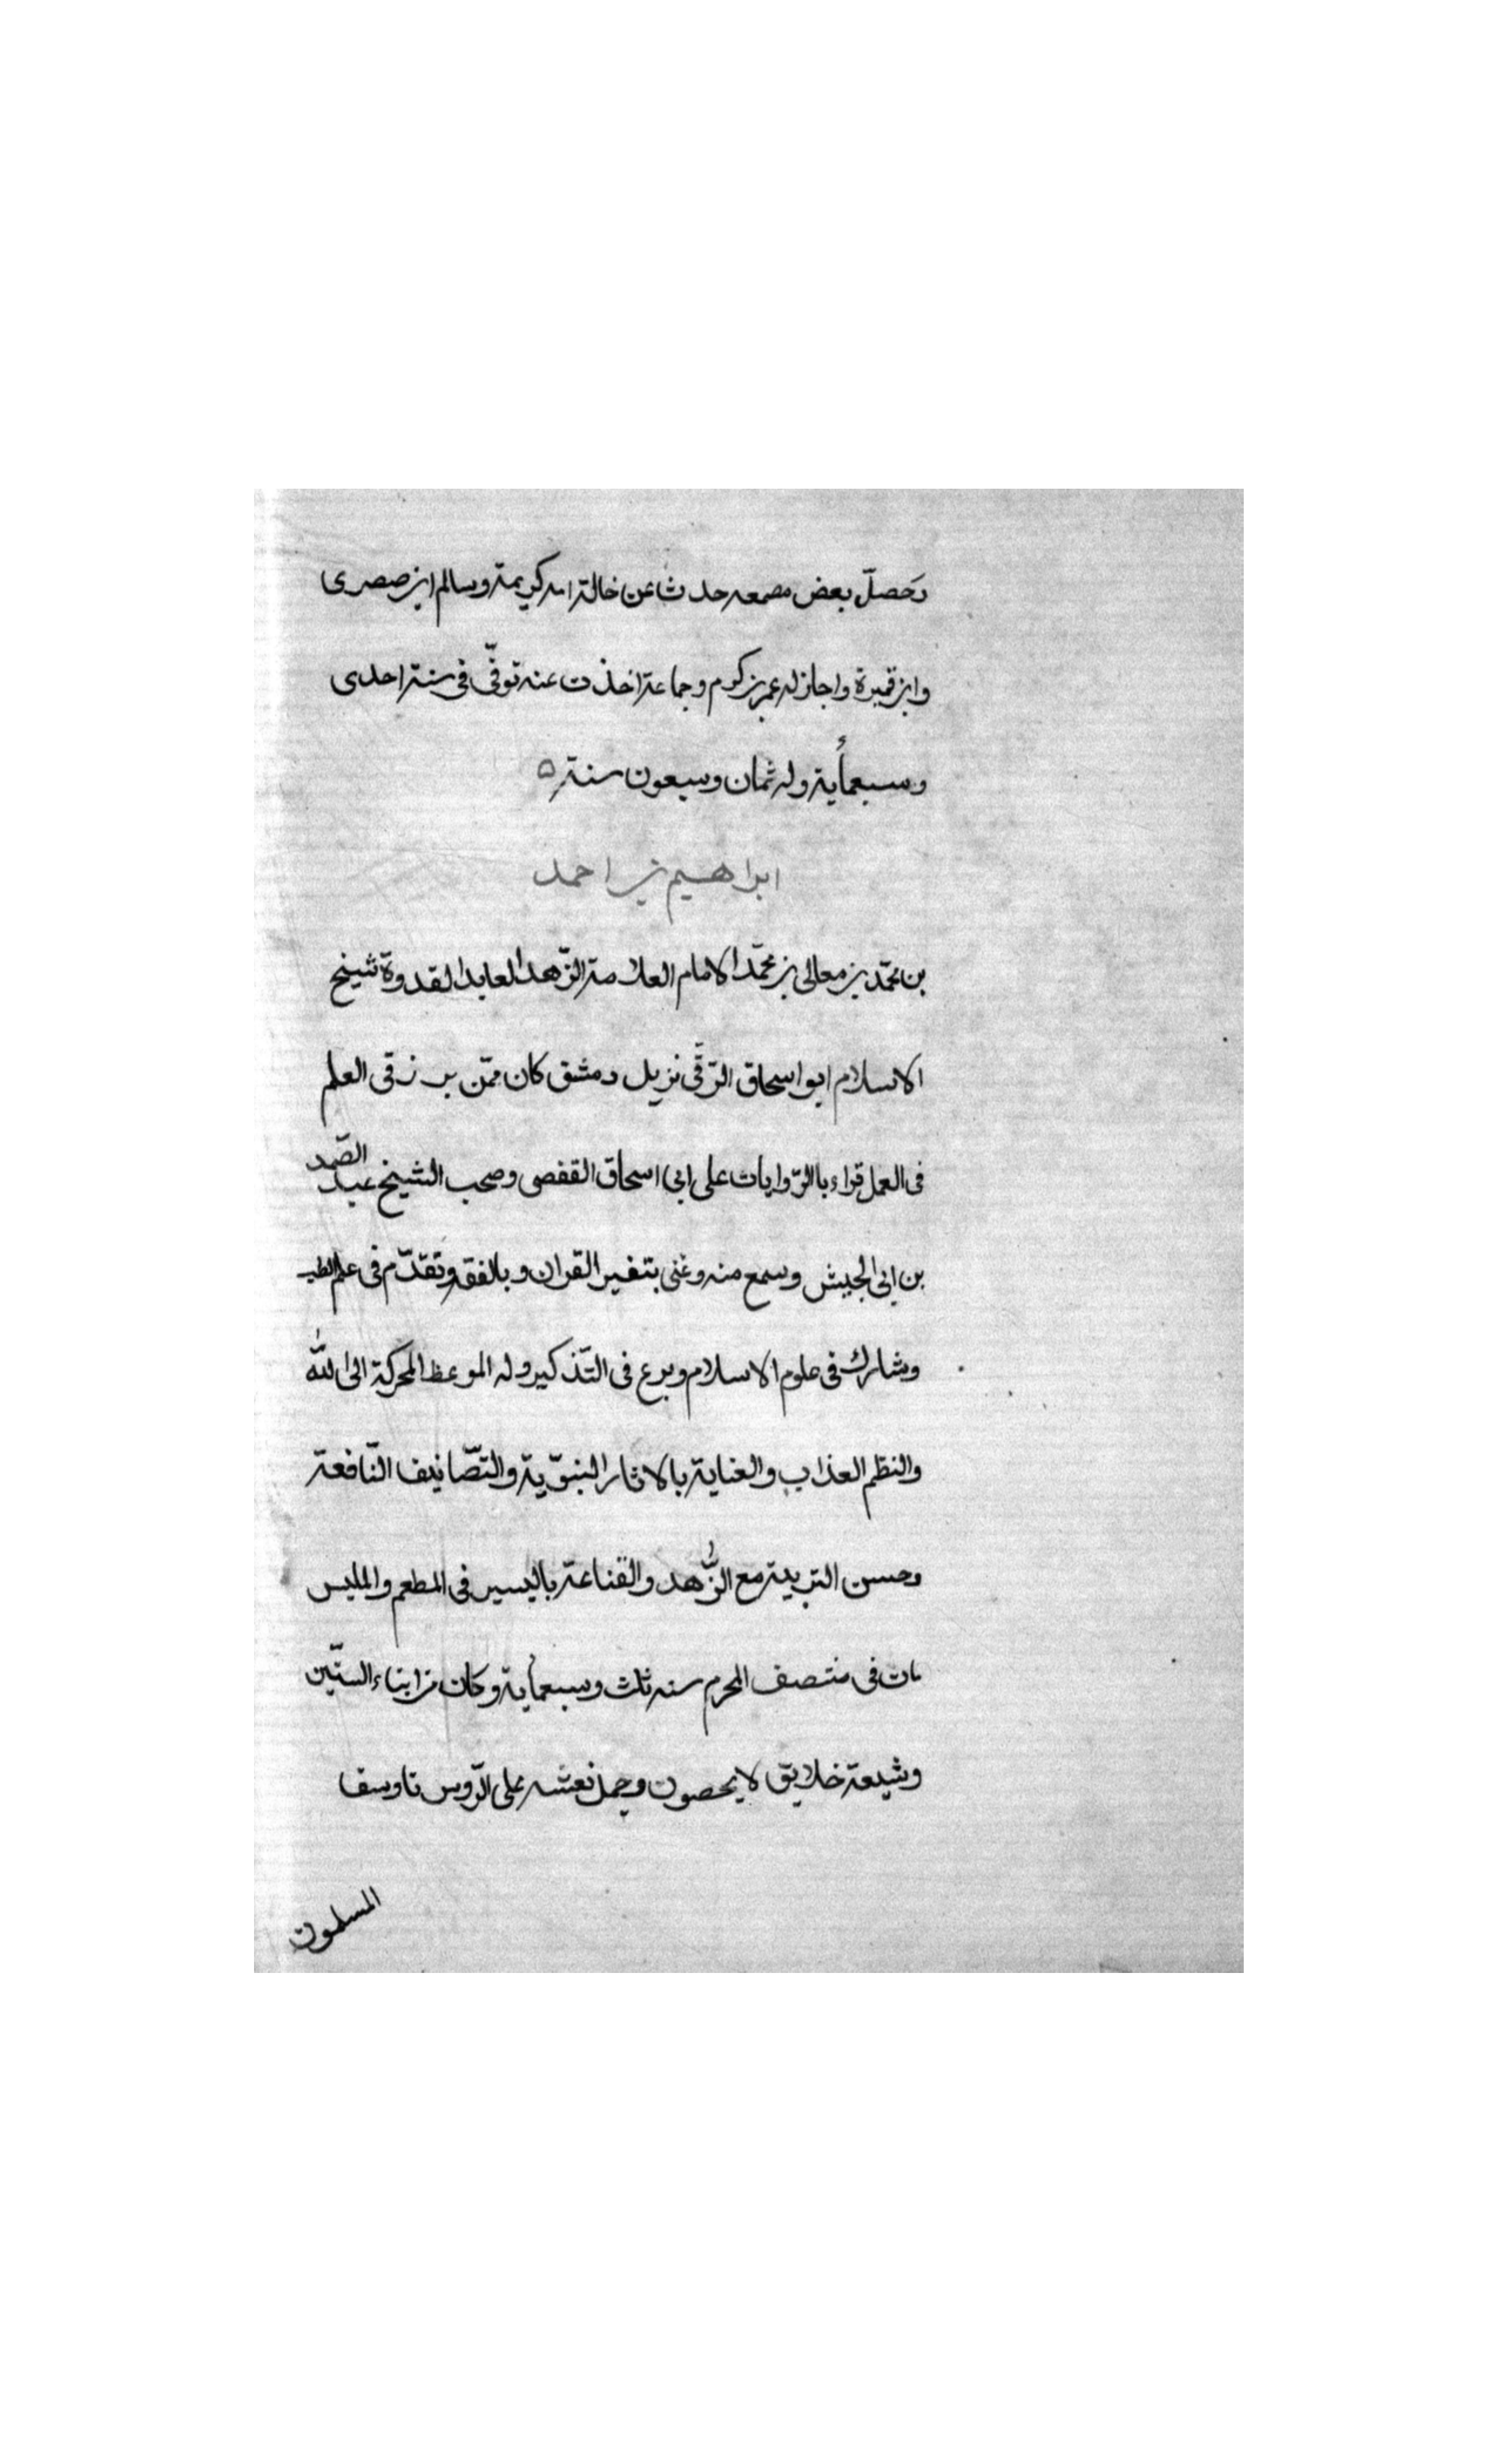 وَحَصلّ بعض مسمعه حدث عن خالة امه كريمة وسالم ابن صصرى
وابن قميرة واجاز له عمر بن كرم وجماعة اخذت عنه توفّى فى سنة احدى
وسبعمأية وله ثمان وسبعون سنة ۵
ابراهيم بن احمد
بن محمّد بن معالى بن محمّد الامام العلامة الزّهد العابد القدوة شيخ
الاسلام ابو اسحاق الرّقّى نزيل دمشق كان ممّن برز فى العلم
فى العمل قراء بالرّوايات على ابى اسحاق القفصى وصحب الشيخ عبد الصّمد
بن ابى الجيش وسمع منه وعُنى بتفسير القران وبالفقه وتقدّم فى علم الطب
وشارك فى علوم الاسلام وبرع فى التّذكير وله الموعظ المحركة الى اللّٰه
والنظم العذاب والعناية بالاثار النبوّية والتّصانيف النّافعة
وحسن التربية مع الزُّهد والقناعة باليسير فى المطعم والملبس
مات فى منتصف المحرم سنه ثلث وسبعمأية وكان من ابناء الستّين
وشيعة خلايق لا يحصون وحمل نعشه على الرّوس تاوسف
المسلمون